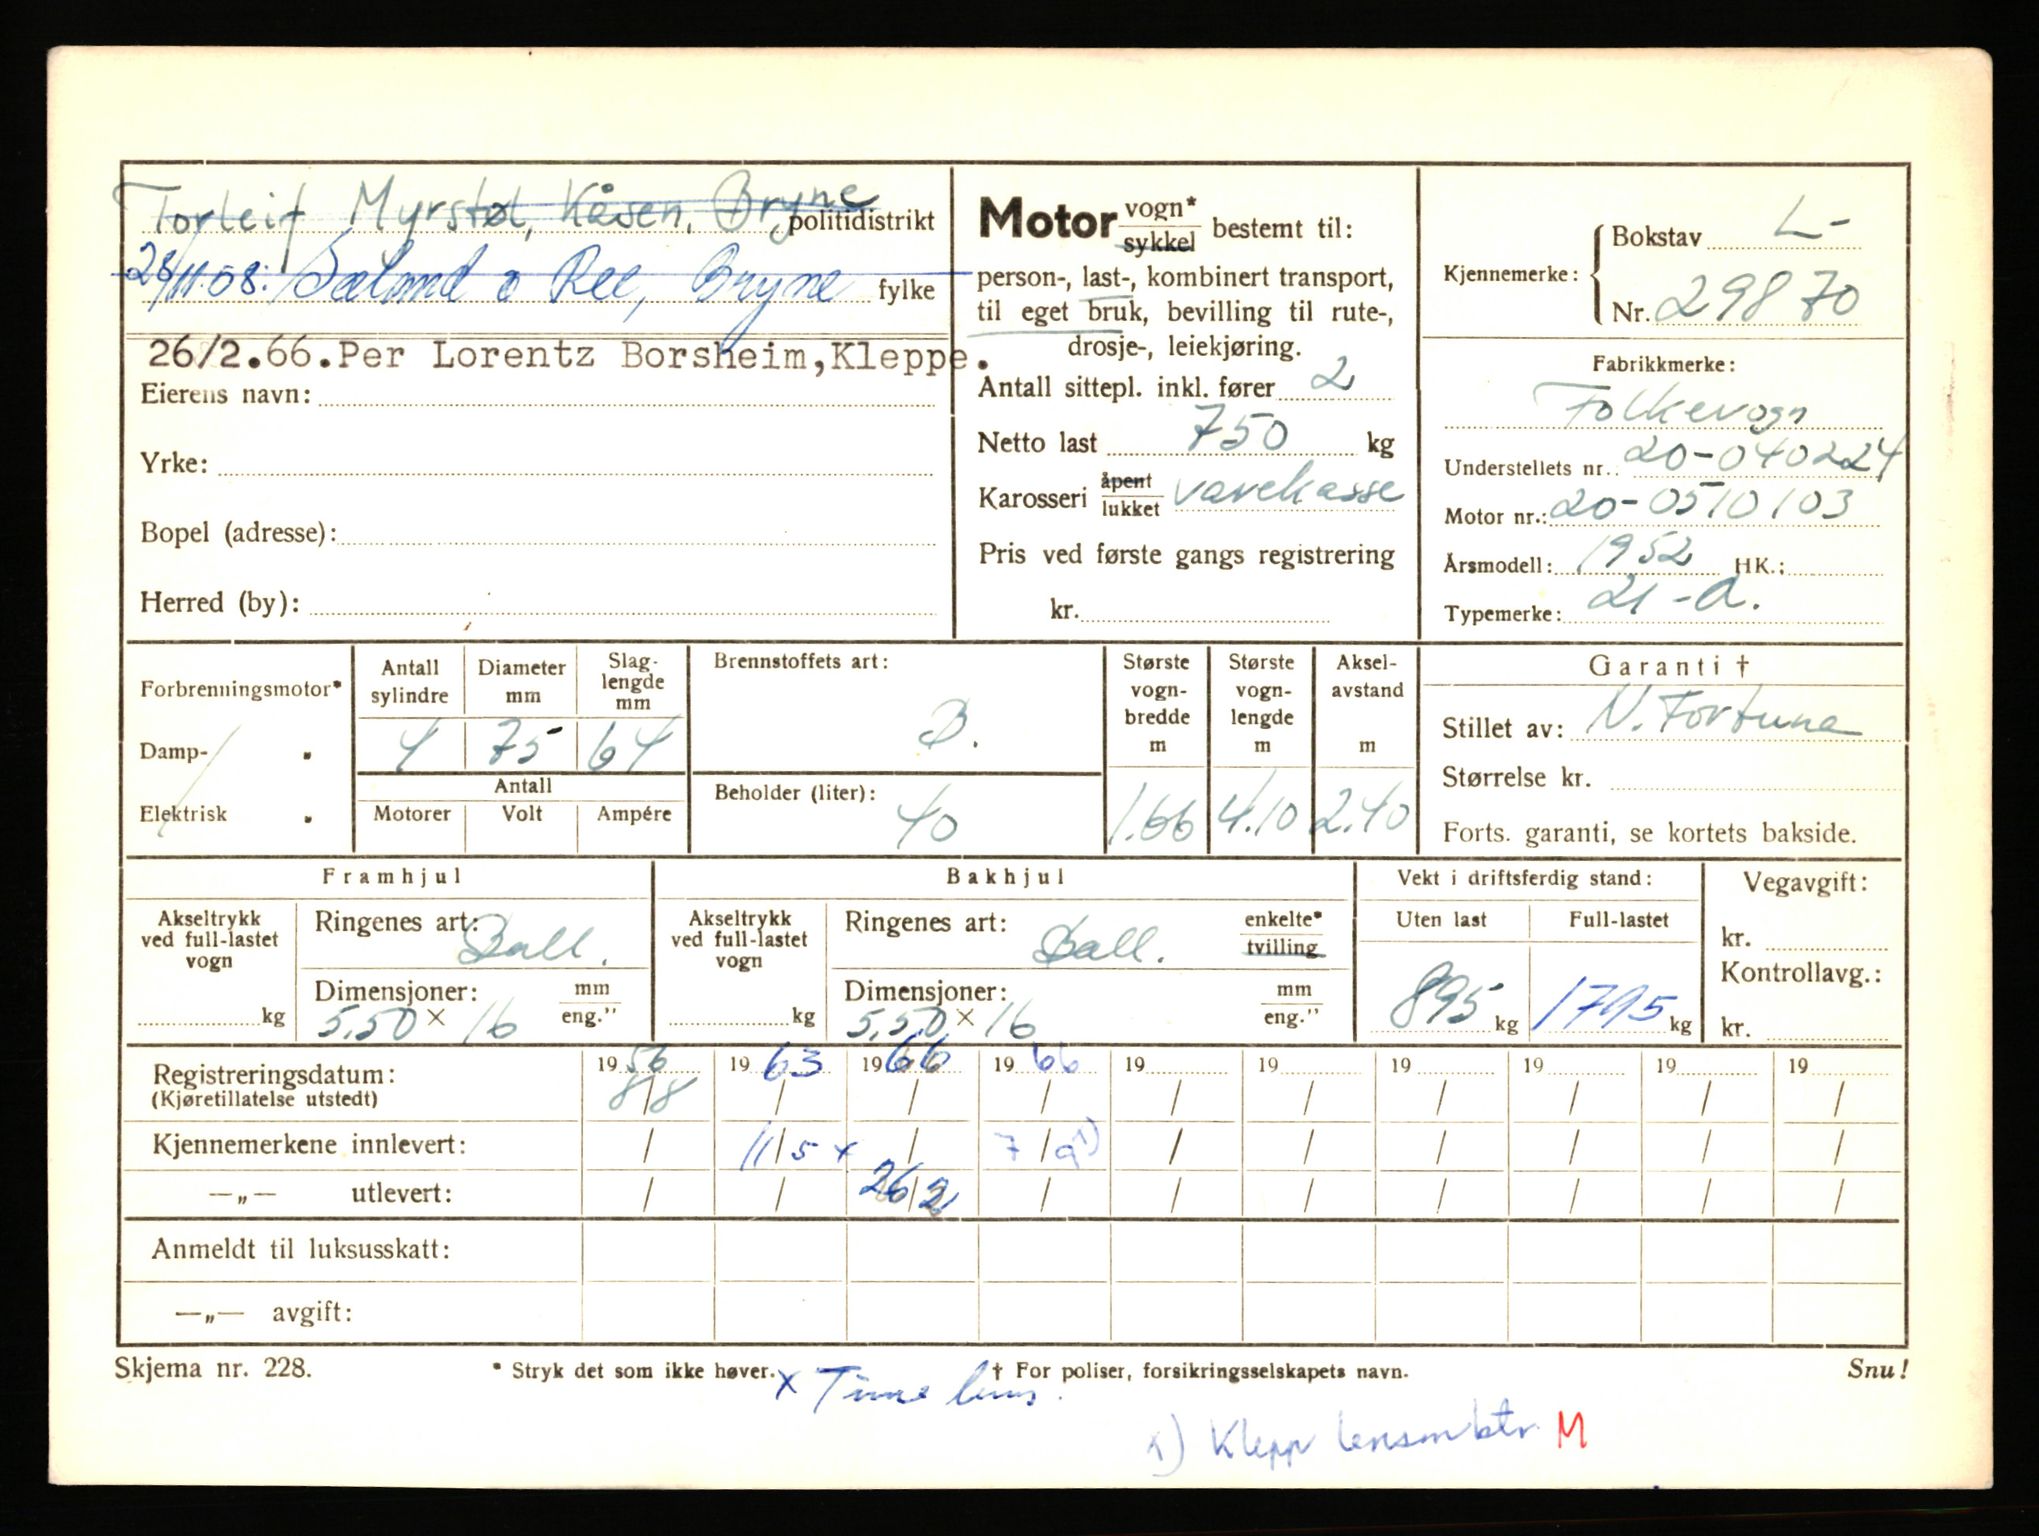 Torleif Myrstøl, Kåsen, Bryne politidistrikt
28/11.58: Sæland o Ree, Bryne fylke
26/2.66. Per Lorentz Borsheim, Kleppe.
Eierens navn:
Yrke:
Bopel (adresse):
Herred (by):
Motor vogn* sykkel bestemt til:
person-, last-, kombinert transport,
til eget bruk, bevilling til rute-,
drosje-, leiekjøring.
Antall sittepl. inkl. fører 2
Netto last 750 kg
Karosseri åpent lukket varekasse
Pris ved første gangs registrering
kr.
Kjennemerke: Bokstav L-
Nr. 29870
Fabrikkmerke:
Folkevogn
Understellets nr.: 20-040224
Motor nr.: 20-0510103
Årsmodell: 1952 HK.:
Typemerke: 21-a.
Forbrenningsmotor*
Damp- "
Elektrisk "
Antall sylindre Diameter mm Slaglengde mm
4 75 64
Antall
Motorer Volt Ampére
Brennstoffets art:
B.
Beholder (liter):
40
Største vogn-bredde m Største vogn-lengde m Aksel-avstand m
1.66 4.10 2.40
Garanti †
Stillet av: N. Fortuna
Størrelse kr.
Forts. garanti, se kortets bakside.
Framhjul
Akseltrykk ved full-lastet vogn
kg
Ringenes art: Ball.
Dimensjoner: mm eng."
5.50 × 16
Bakhjul
Akseltrykk ved full-lastet vogn
kg
Ringenes art: Ball. enkelte* tvilling
Dimensjoner: mm eng."
5.50 × 16
Vekt i driftsferdig stand:
Uten last Full-lastet
895 kg 1795 kg
Vegavgift:
kr.
Kontrollavg.:
kr.
Registreringsdatum: 1956 1963 1966 1966 19 19 19 19 19 19
(Kjøretillatelse utstedt) 8/8 / / / / / / / / /
Kjennemerkene innlevert: / 11/5 x / 7/9 1) / / / / / /
—„— utlevert: / / 26/2 / / / / / / /
Anmeldt til luksusskatt:
—„— avgift:
Skjema nr. 228. * Stryk det som ikke høver. † For poliser, forsikringsselskapets navn. Snu!
x Time lens.
1) Klepp lensm.ktr. M